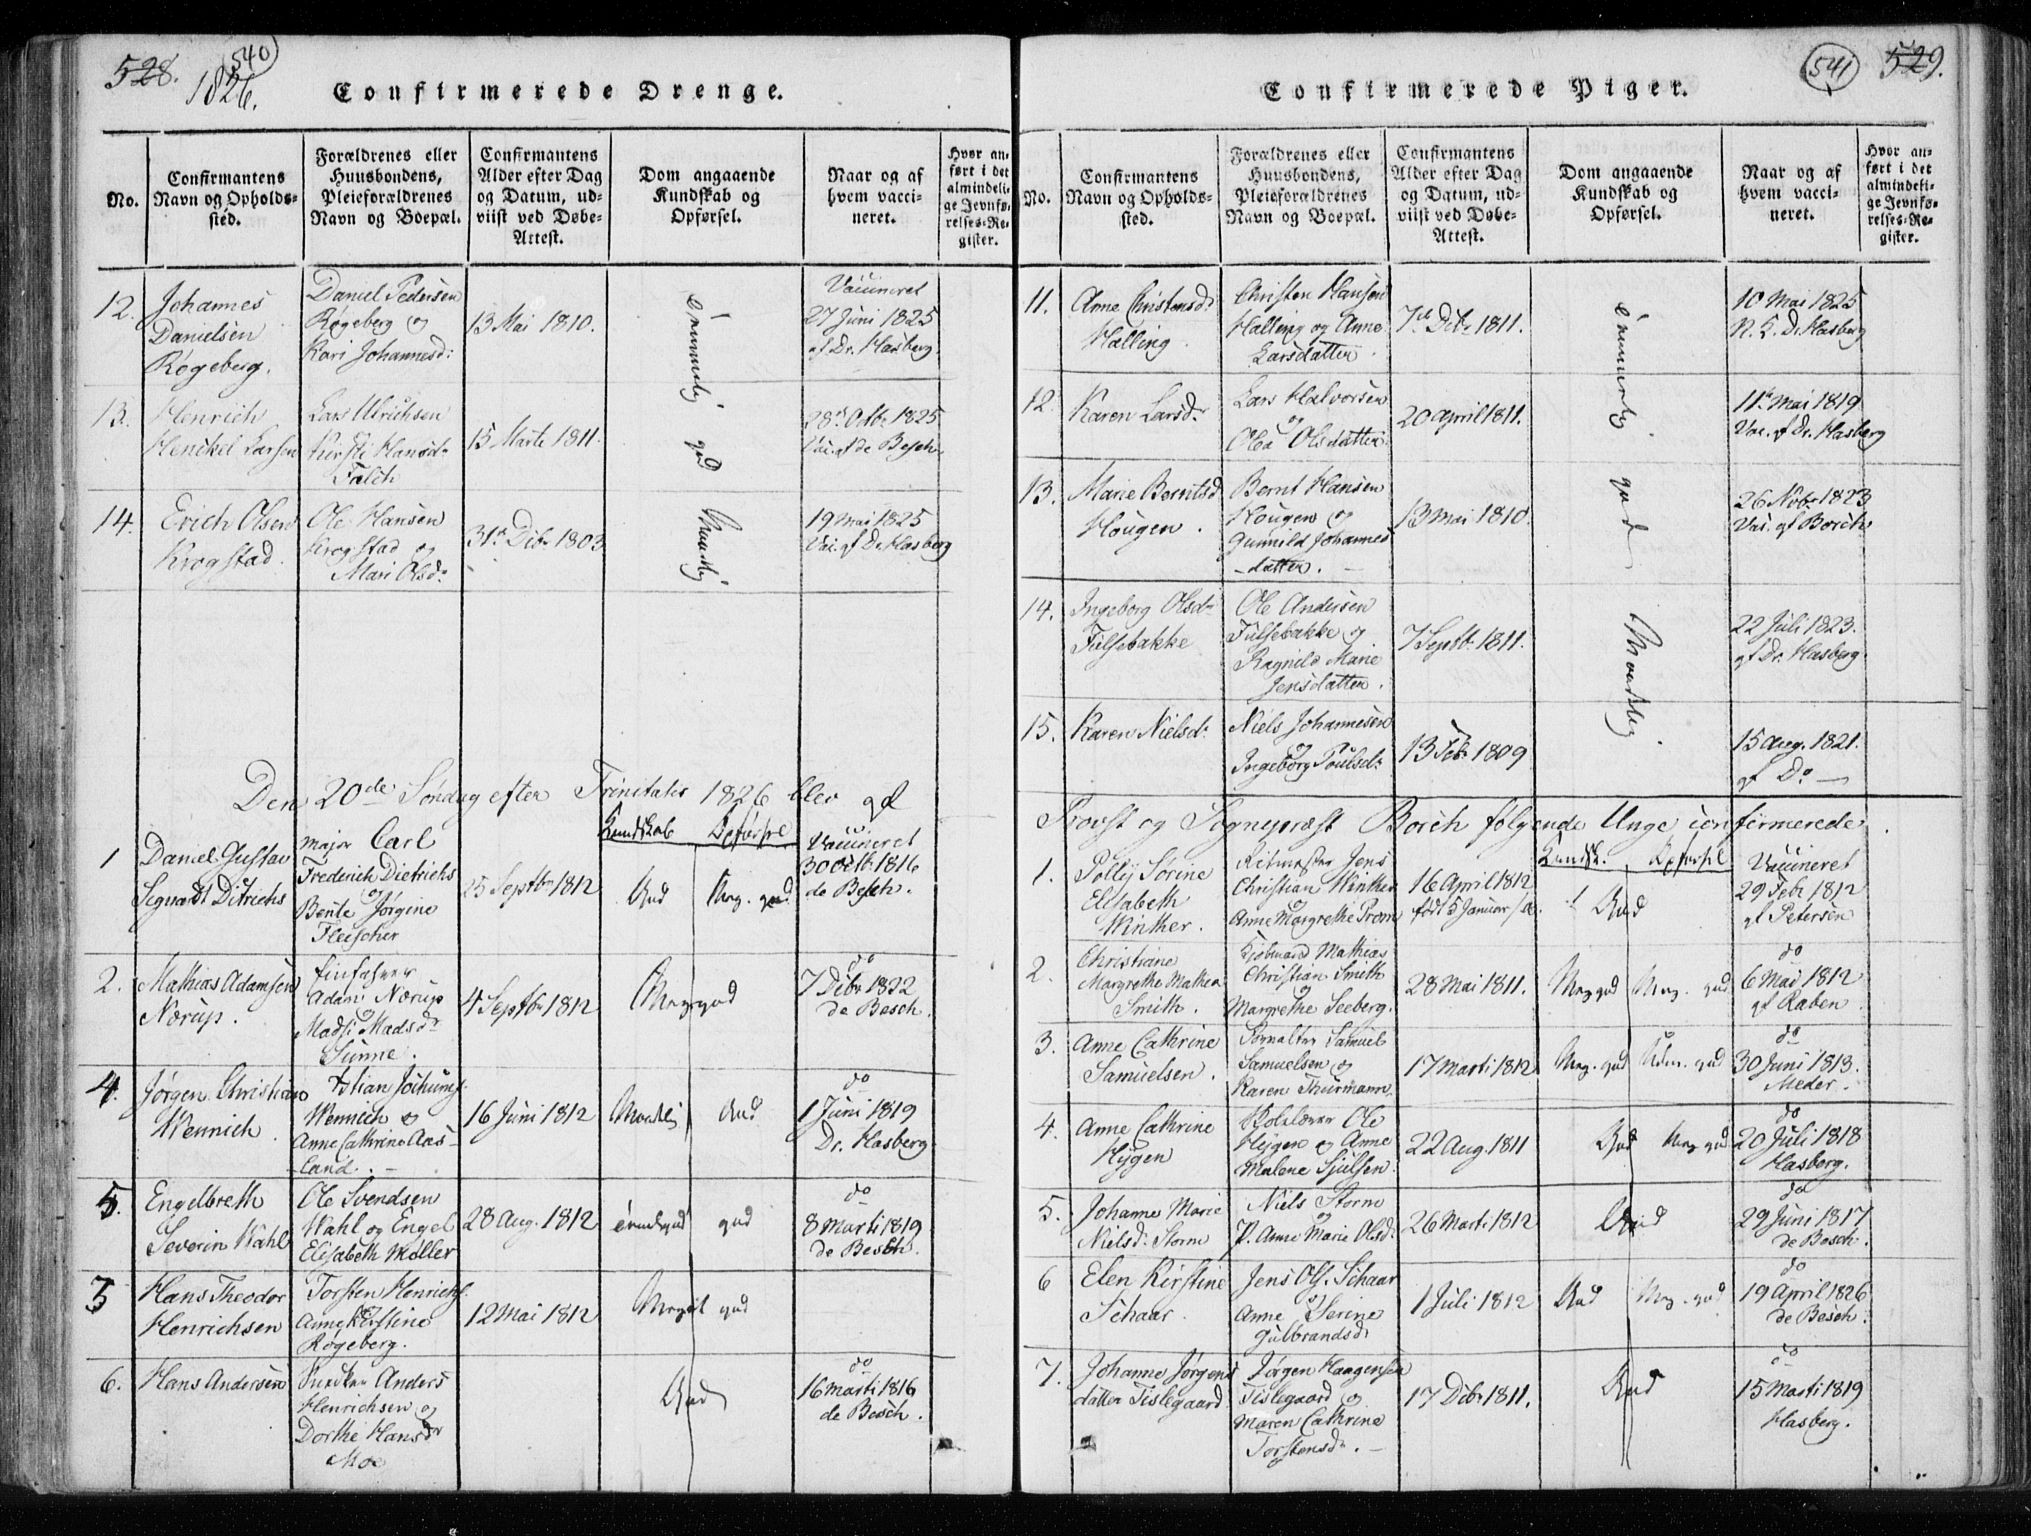 528.
540
1826.
Confirmerede Drenge.
No.
Confirmantens
Navn og Opholds-
sted.
Forældrenes eller
Huusbondens,
Pleieforældrenes
Navn og Boepæl.
Confirmantens
Alder efter Dag
og Datum, ud-
viist ved Døbe-
Attest.
Dom angaaende
Kundskab og
Opførsel.
Naar og af
hvem vacci-
neret.
Hvor an-
ført i det
almindeli-
ge Jevnfø-
relses-Re-
gister.
12.
Johannes
Danielsen
Røgeberg.
Daniel Pedersen
Røgeberg og
Kari Johannesd:
13 Mai 1810.
Vaccineret
27 Juni 1825
af Dr. Hasberg.
god
13.
Henrich
Henckel Larsen
Lars Ulrichsen
Kirsti Hansd:
Falch
15 Marti 1811.
28d Octbr 1825
Vac. af de Besch.
14.
Erich Olsen
Krogstad.
Ole Hansen
Krogstad og
Mari Olsd:
31t Dibr 1803
19 Mai 1825
Vac. af Dr Hasberg
Den 20de Søndag efter Trinitatis 1826 blev af
Kundskab
Opførsel
1
Daniel Gustav
Ditrichs
Major Carl
Frederich Dietrichs
og
Bente Jørgine
Fleischer
25 Septbr 1812
God
Meg. god
Vaccineret
30 Octb 1816
de Besch.
2.
Mathias Adamsen
Nørup.
Adam Nørup
og
Madsd:
Sunne.
4 Septbr 1812
Meg god
do
7 Dibr 1822
de Besch.
4.
Jørgen Christian
Wennich
Wennich og
Anne Cathrine Aas-
land.
16 Juni 1812
Maadelig
God
do
1 Juni 1819
Dr. Hasberg.
5.
Engelbreth
Severin Wahl
Ole Svendsen
Wahl og Engel
Elisabeth Møller
28 Aug. 1812
god
do
8 Marti 1819
de Besch.
3
Hans Theodor
Henrichsen
Torsten Henrichs.
Anne Kirstine
Røgeberg.
12 Mai 1812
Meget god
6.
Hans Andersen
Anders
Henrichsen og
Dorthe Hansdr
Moe
God
do
16 Marti 1816
de Besch.
541
529.
Confirmerede Piger.
No.
Confirmantens
Navn og Opholds-
sted.
Forældrenes eller
Huusbondens,
Pleieforældrenes
Navn og Boepæl.
Confirmantens
Alder efter Dag
og Datum, ud-
viist ved Døbe-
Attest.
Dom angaaende
Kundskab og
Opførsel.
Naar og af
hvem vacci-
neret.
Hvor an-
ført i det
almindeli-
ge Jevnfø-
relses-Re-
gister.
11.
Anne Christensd:
Halling.
Christen Hansen
Halling og Anne
Larsdatter.
7d Dibr 1811.
10 Mai 1825
Dr. Hasberg
god
12.
Karen Larsd:
Lars Halvorsen
og
Olea Olsdatter.
20 April 1811.
11t Mai 1819
Vac. af Dr. Hasberg
13.
Marie Berntsd.
Hougen.
Bernt Hansen
Hougen og
Gunnild Johannes
datter.
13 Mai 1810.
26 Nvbr 1823
Vac. af Borch.
14.
Ingeborg Olsd:
Fulsebakke
Ole Andersen
Fulsebakke og
Ragnild Marie
Jensdatter.
7 Septbr 1811.
22 Juli 1823.
af Dr. Hasberg.
Maadelig
15.
Karen Nielsd:
Niels Johannesen
og
Ingeborg Poulsd:
13 Febr 1809
15 Aug. 1821.
af Do
Provst og Sognepræst Borch følgende Unge confirmerede.
Kundsk.
Opførsel
1.
Polly Sørine
Elisabeth
Winther.
Ritmester Jens
Christian Winther
og
Anne Margrethe Prom
16 April 1812
født 5 Januar
God
Vaccineret
29 Febr 1812
af Petersen
2.
Christiane
Margrethe Mathea
Smith.
Kjøbmand Mathias
Christian Smith
og
Margrethe Seeberg.
28 Mai 1811.
Meg god
Meg. god
do
6 Mai 1812
af Raben.
3.
Anne Cathrine
Samuelsen.
Samuel
Samuelsen og
Karen Thurmann.
17 Marti 1812
Meg. god
god
do
30 Juni 1813.
Meder.
4.
Anne Cathrine
Hygen
Ole
Hygen og Anne
Malene Sjulsen.
22 Aug. 1811
God
Meg god
do
20 Juli 1818
Hasberg.
5.
Johanne Marie
Nielsd: Storm
Niels Storm
og
P. Anne Marie Olsd:
26 Marti 1812
God
do
29 Juni 1817
de Besch.
6
Elen Kirstine
Schaar.
Jens Ols. Schaar
og
Anne Serine
Gulbrandsd:
1 Juli 1812
God
Meg. god
do
19 April 1826
de Besch.
7.
Johanne Jørgens
datter Tislegaard
Jørgen Haagensen
Tislegaard og
Maren Cathrine
Torstensd:
17 Dibr 1811.
God
do
15 Marti 1819
Hasberg.